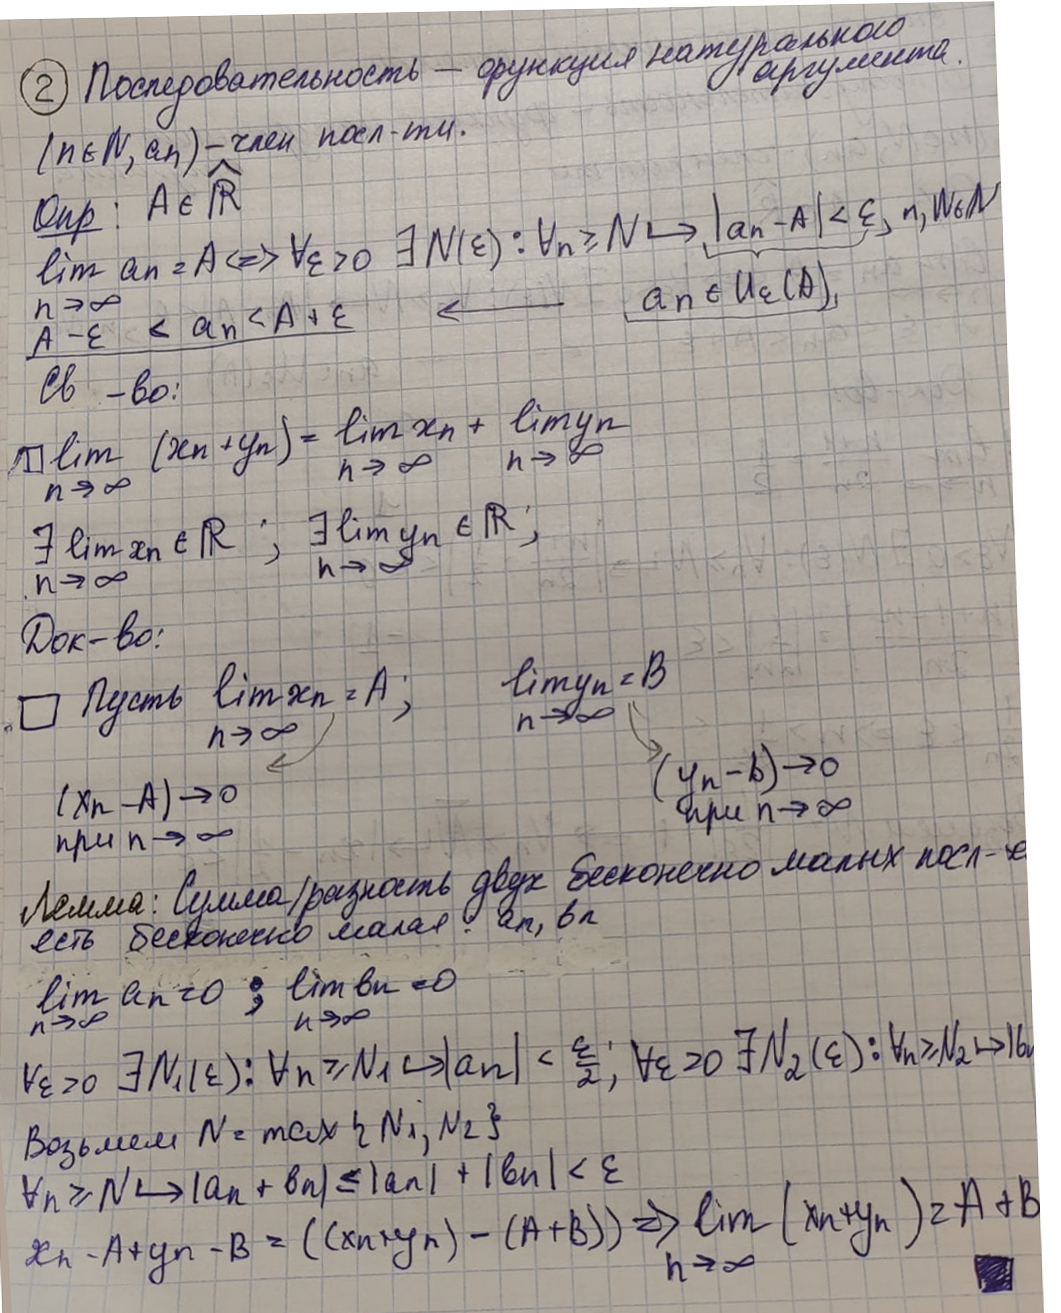 ② Последовательность — функция натурального
аргумента.
(n∈N, an) – член посл-ти.
Опр: A ∈ R̂
lim an = A <=> ∀ε>0 ∃N(ε): ∀n≥N ↪ |an - A| < ε, n, N∈N
n→∞
an ∈ Uε(A),
A - ε < an < A + ε ←
Св -во:
lim (xn + yn) = lim xn + lim yn
n→∞ n→∞ n→∞
∃ lim xn ∈ R ; ∃ lim yn ∈ R ;
n→∞ n→∞
Док-во:
□ Пусть lim xn = A; lim yn = B
n→∞ n→∞
(xn - A) → 0 (yn - b) → 0
при n→∞ при n→∞
Лемма: Сумма/разность двух бесконечно малых посл-
есть бесконечно малая: an, bn
lim an = 0 ; lim bn = 0
n→∞ n→∞
∀ε>0 ∃N1(ε): ∀n≥N1 ↪ |an| < ε/2; ∀ε>0 ∃N2(ε): ∀n≥N2 ↪ |bn
Возьмем N = max {N1; N2}
∀n≥N ↪ |an + bn| ≤ |an| + |bn| < ε
xn - A + yn - B = ((xn+yn) - (A+B)) => lim (xn+yn) = A + B
n→∞